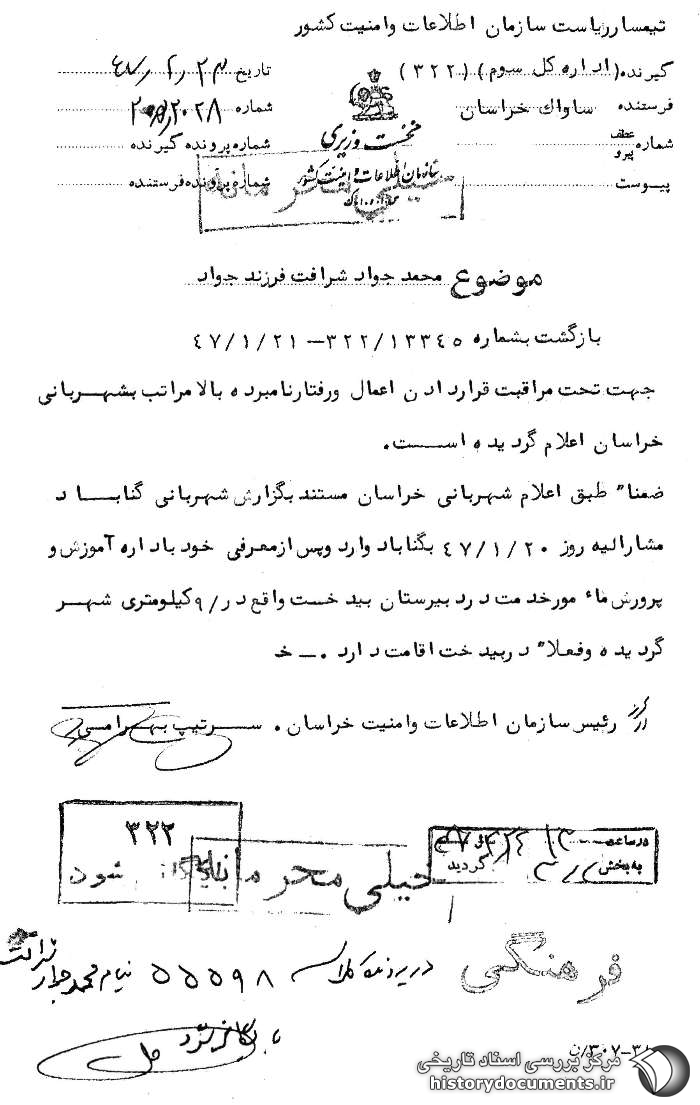 تیمسار ریاست سازمان اطلاعات وامنیت کشور
گیرنده (اداره کل سوم) (۳۲۲)
تاریخ
فرستنده ساواک خراسان
شماره
شماره عطف پیرو
شماره پرونده گیرنده
پیوست
شماره پرونده فرستنده
نخست وزیری
سازمان اطلاعات و امنیت کشور
س.ا.و.ا.ک
خیلی محرمانه
موضوع محمد جواد شرافت فرزند جواد
بازگشت بشماره ۳۲۲/۱۳۳۴۵ – ۴۷/۱/۲۱
جهت تحت مراقبت قرار دادن اعمال ورفتارنامبرده بالا مراتب بشهربانی
خراسان اعلام گردیده است.
ضمنا" طبق اعلام شهربانی خراسان مستند بگزارش شهربانی گناباد
مشارالیه روز ۴۷/۱/۲۰ بگناباد وارد وپس ازمعرفی خود باداره آموزش و
پرورش مٲمورخدمت دردبیرستان بیدخت واقع در/۹کیلومتری شهر
گردیده وفعلا" دربیدخت اقامت دارد . ـ خ
رئیس سازمان اطلاعات وامنیت خراسان . سرتیپ بهرامی
۳۲۲
بایگانی شود
خیلی محرمانه
در ساعت
به بخش
گردید
فرهنگی
در پرونده کلاسه ۵۵۵۹۸ بنام محمد جواد شرافت
بایگانی شود
مرکز بررسی اسناد تاریخی
historydocuments.ir